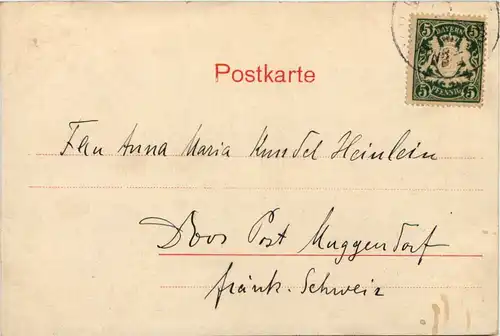 BAYERN
5 5
PFENNIG
5 5
Postkarte
Frau Anna Maria Kundel Heinlein
Doos Post Muggendorf
fränk. Schweiz